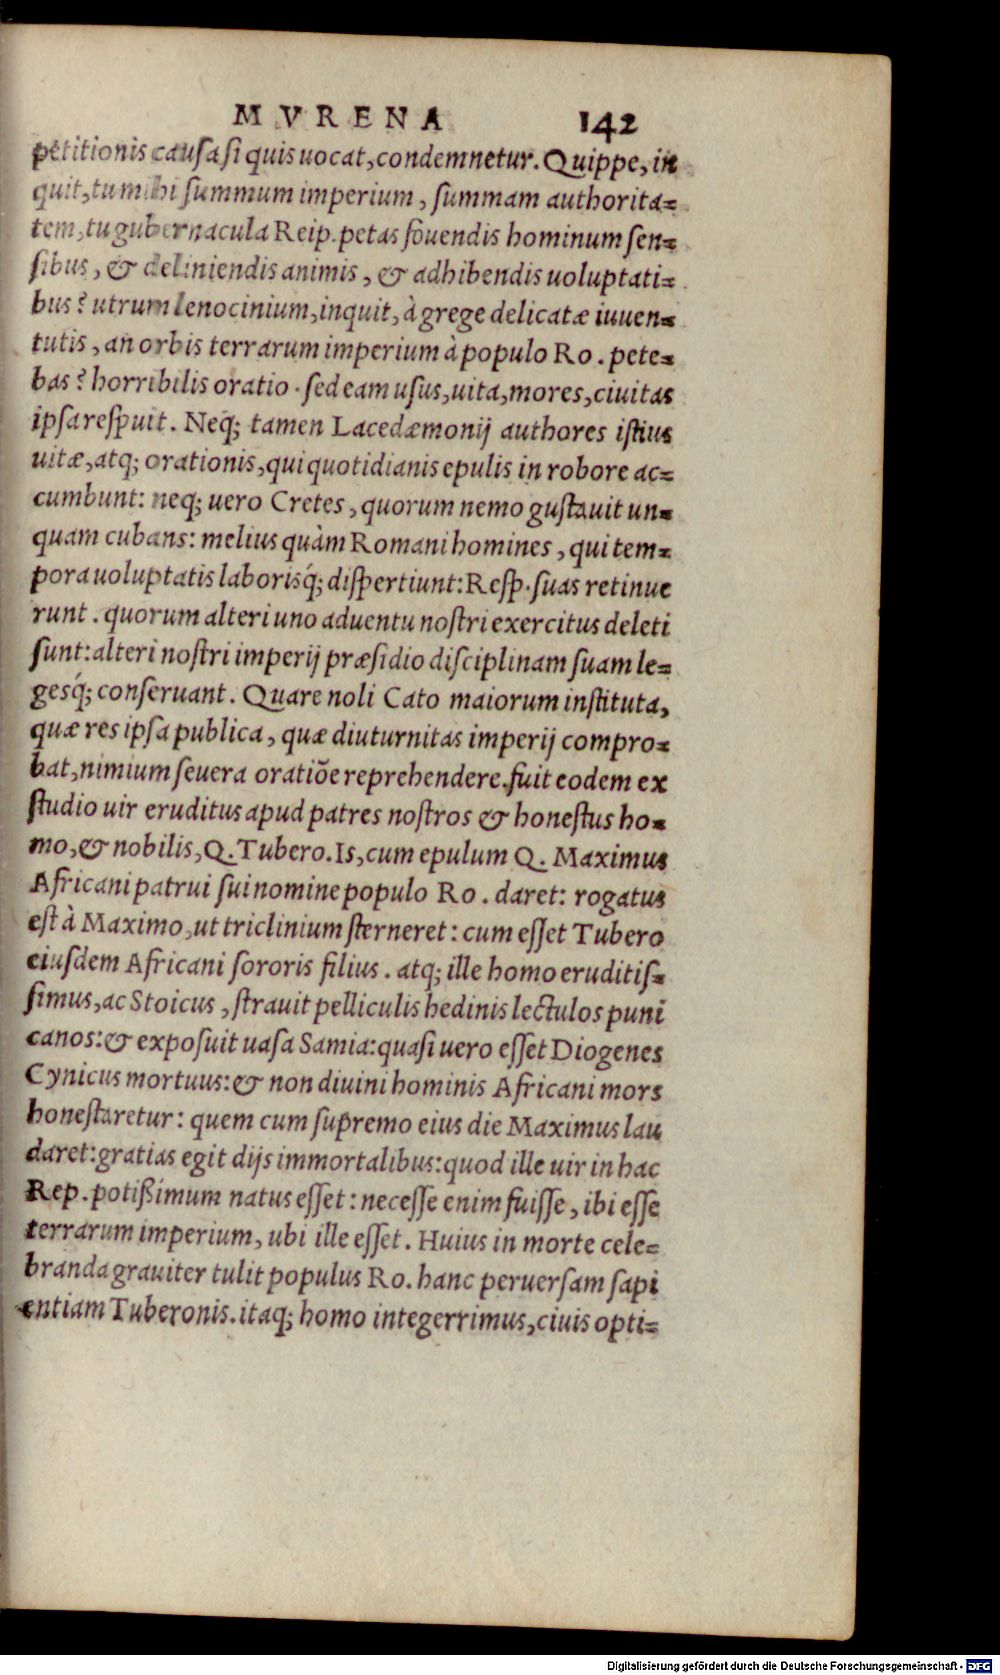 MVRENA 142
petitionis causa si quis uocat, condemnetur. Quippe, in
quit, tu mihi summum imperium, summam authorita=
tem, tu gubernacula Reip. petas fouendis hominum sen=
sibus, & deliniendis animis, & adhibendis uoluptati=
bus? utrum lenocinium, inquit, à grege delicatæ iuuen=
tutis, an orbis terrarum imperium à populo Ro. pete=
bas? horribilis oratio. sed eam usus, uita, mores, ciuitas
ipsa respuit. Neq; tamen Lacedæmonij authores istius
uitæ, atq; orationis, qui quotidianis epulis in robore ac=
cumbunt: neq; uero Cretes, quorum nemo gustauit un=
quam cubans: melius quàm Romani homines, qui tem=
pora uoluptatis laborisq́; dispertiunt: Resp. suas retinue
runt. quorum alteri uno aduentu nostri exercitus deleti
sunt: alteri nostri imperij præsidio disciplinam suam le=
gesq́; conseruant. Quare noli Cato maiorum instituta,
quæ res ipsa publica, quæ diuturnitas imperij compro=
bat, nimium seuera oratiõe reprehendere. fuit eodem ex
studio uir eruditus apud patres nostros & honestus ho=
mo, & nobilis, Q. Tubero. Is, cum epulum Q. Maximus
Africani patrui sui nomine populo Ro. daret: rogatus
est à Maximo, ut triclinium sterneret: cum esset Tubero
eiusdem Africani sororis filius. atq; ille homo eruditis=
simus, ac Stoicus, strauit pelliculis hedinis lectulos puni
canos: & exposuit uasa Samia: quasi uero esset Diogenes
Cynicus mortuus: & non diuini hominis Africani mors
honestaretur: quem cum supremo eius die Maximus lau
daret: gratias egit dijs immortalibus: quod ille uir in hac
Rep. potißimum natus esset: necesse enim fuisse, ibi esse
terrarum imperium, ubi ille esset. Huius in morte cele=
branda grauiter tulit populus Ro. hanc peruersam sapi
entiam Tuberonis. itaq; homo integerrimus, ciuis opti=
Digitalisierung gefördert durch die Deutsche Forschungsgemeinschaft - DFG